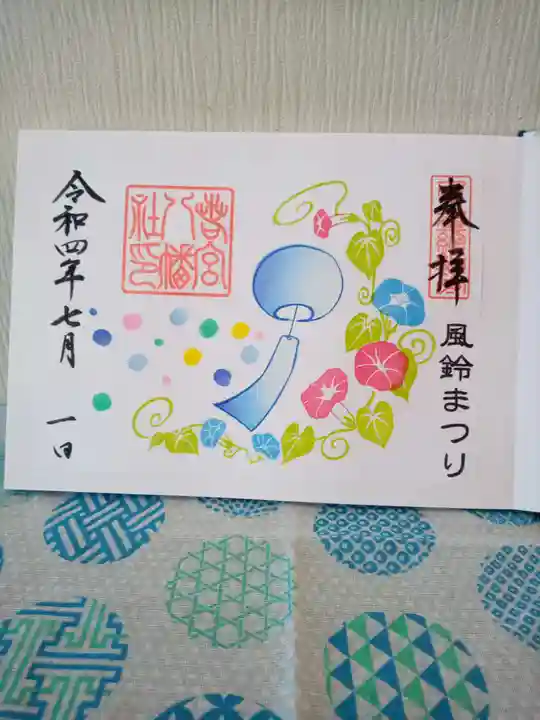 奉拝
風鈴まつり
若宮
八幡
社印
令和四年七月 一日